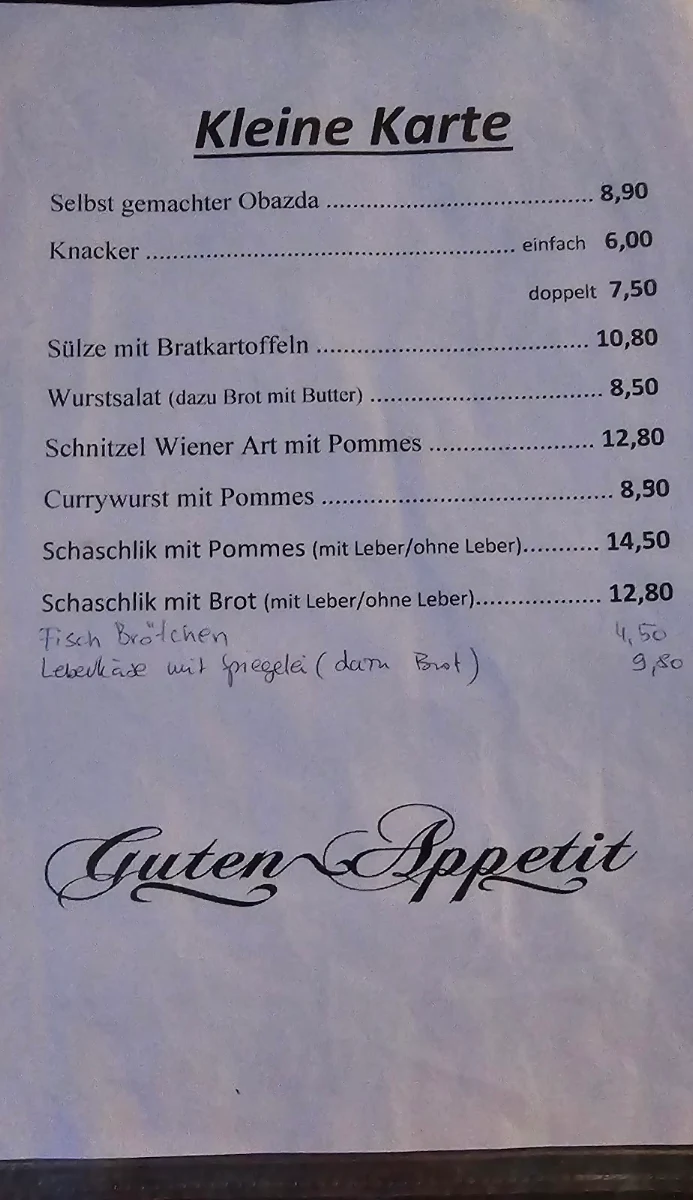 Kleine Karte
Selbst gemachter Obazda ........................................ 8,90
Knacker ....................................................... einfach 6,00
doppelt 7,50
Sülze mit Bratkartoffeln ........................................ 10,80
Wurstsalat (dazu Brot mit Butter) .................................. 8,50
Schnitzel Wiener Art mit Pommes ........................ 12,80
Currywurst mit Pommes ........................................... 8,90
Schaschlik mit Pommes (mit Leber/ohne Leber)........... 14,50
Schaschlik mit Brot (mit Leber/ohne Leber).................. 12,80
Fisch Brötchen 4,50
Leberkäse mit Spiegelei (dazu Brot) 9,80
Guten Appetit